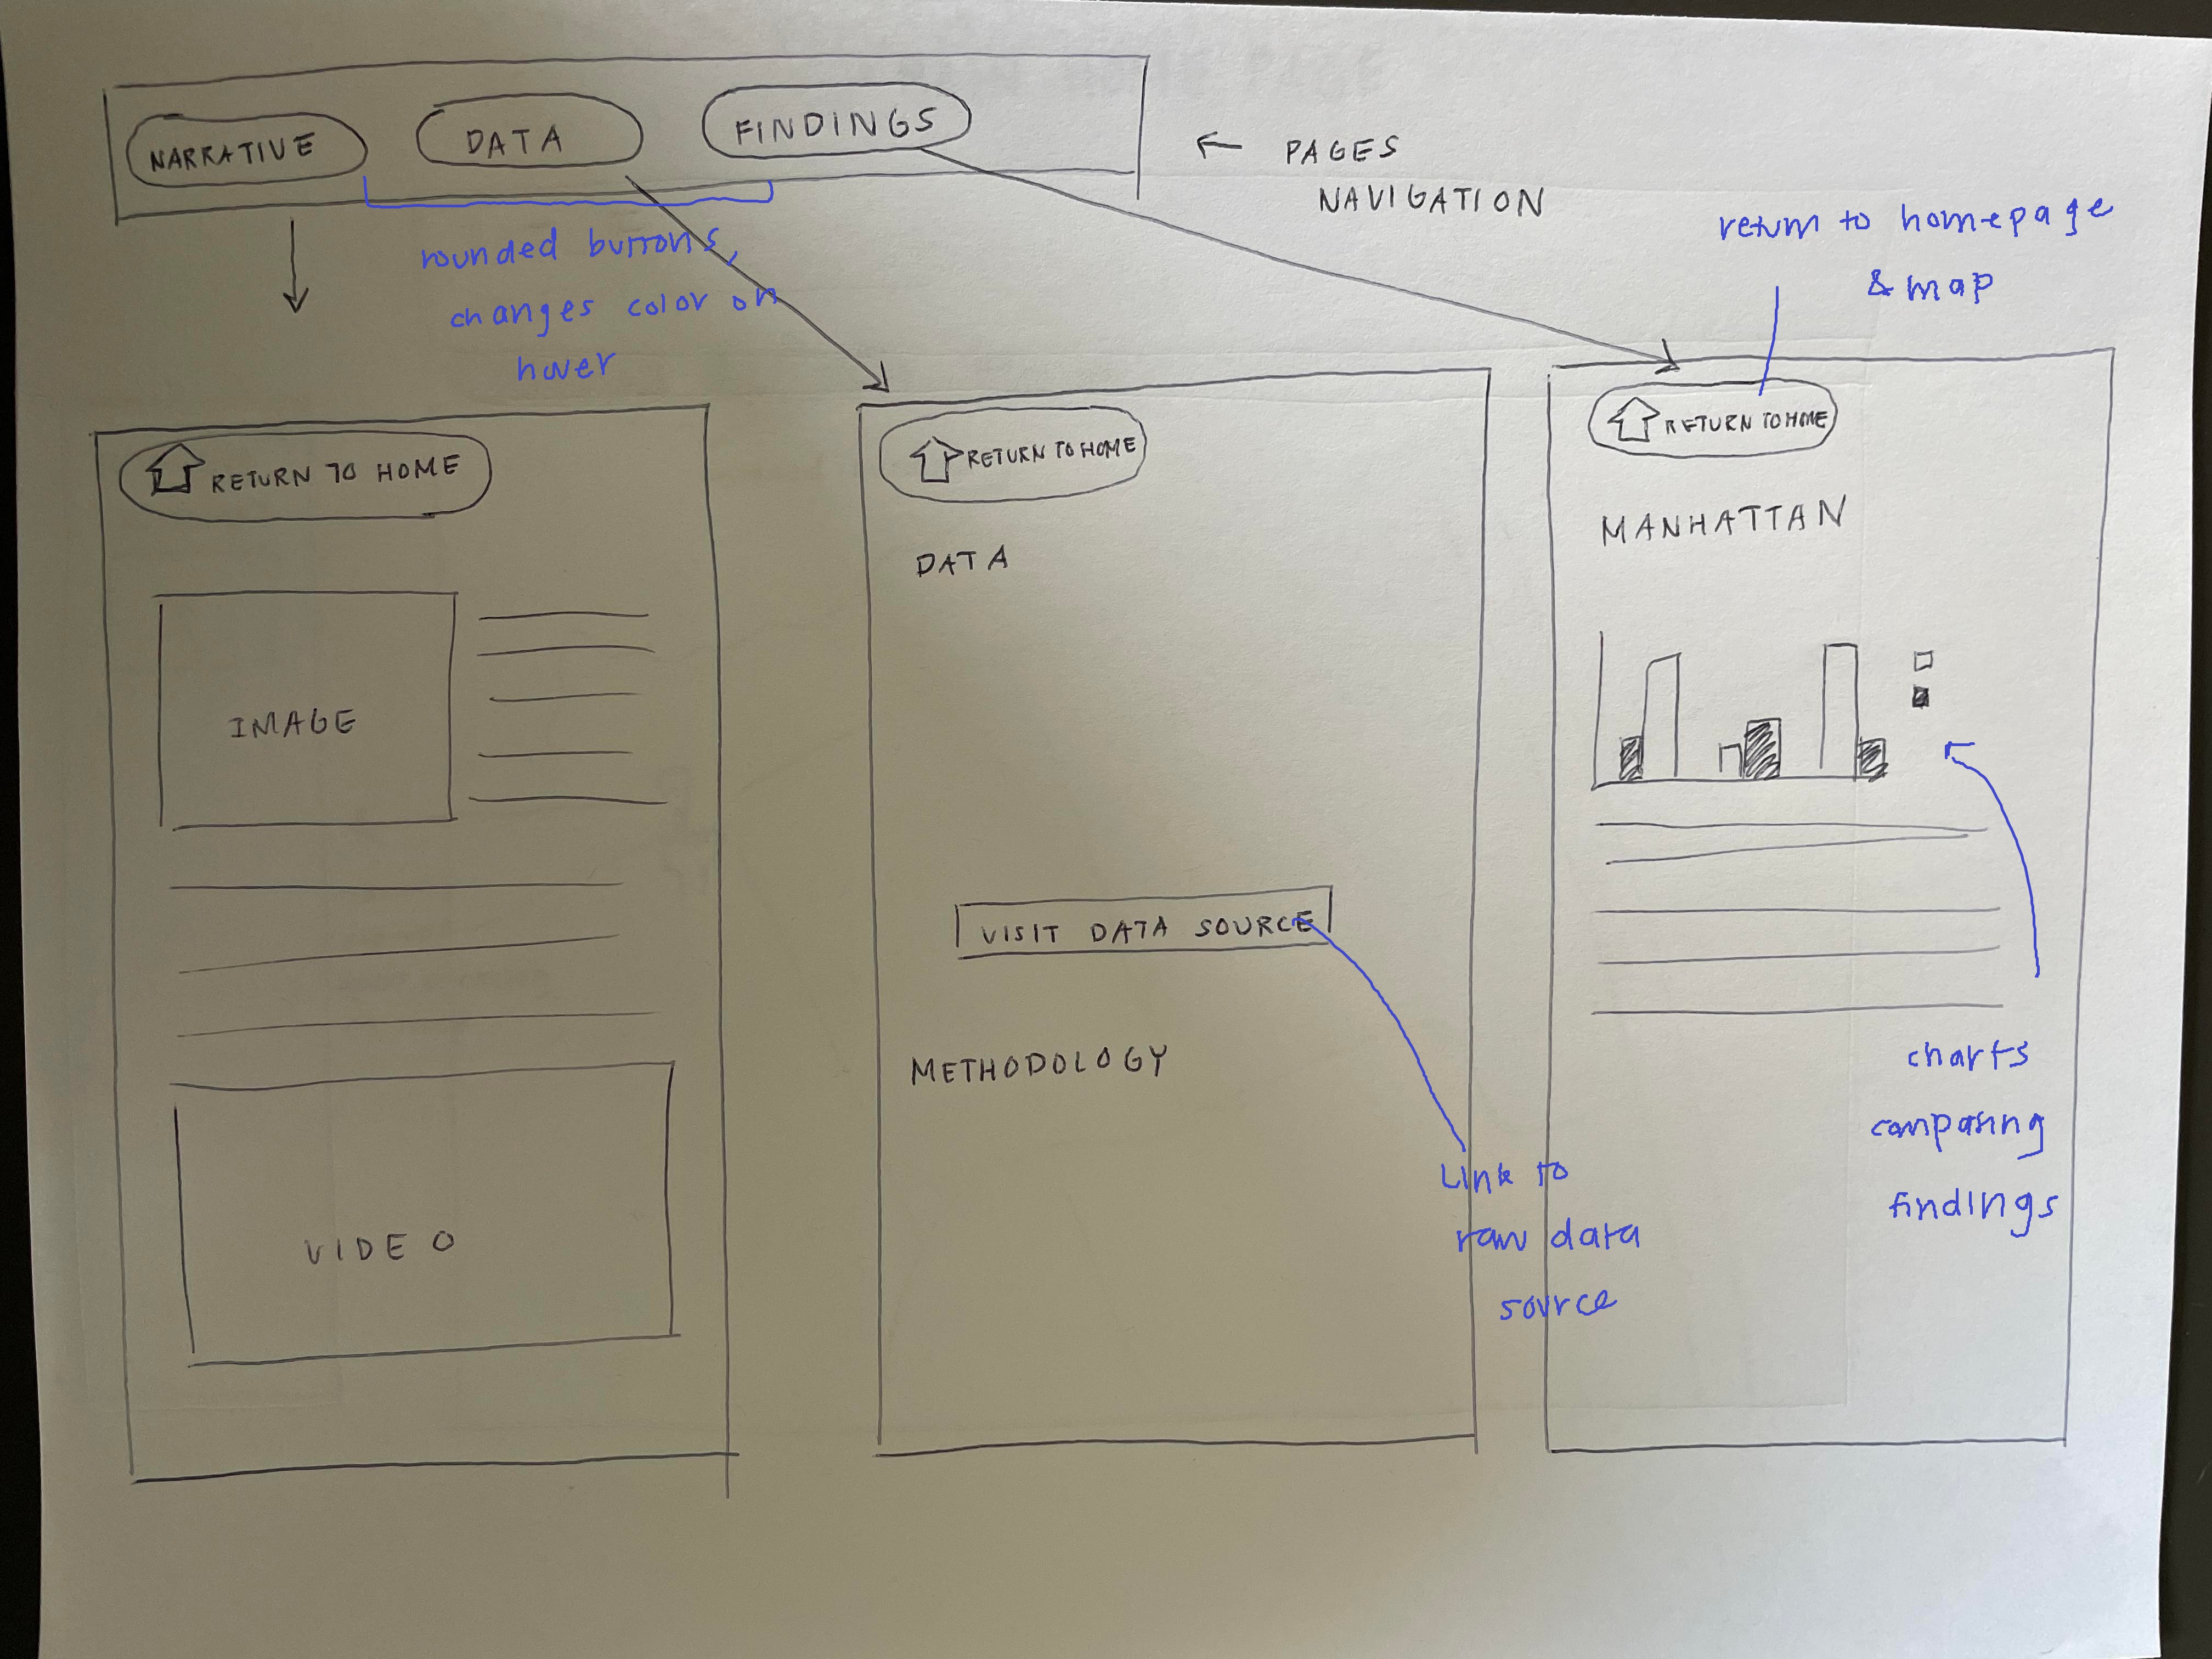 NARRATIVE
DATA
FINDINGS
← PAGES
NAVIGATION
rounded buttons,
changes color on
hover
return to homepage
& map
RETURN TO HOME
IMAGE
VIDEO
RETURN TO HOME
DATA
VISIT DATA SOURCE
METHODOLOGY
Link to
raw data
source
RETURN TO HOME
MANHATTAN
charts
comparing
findings